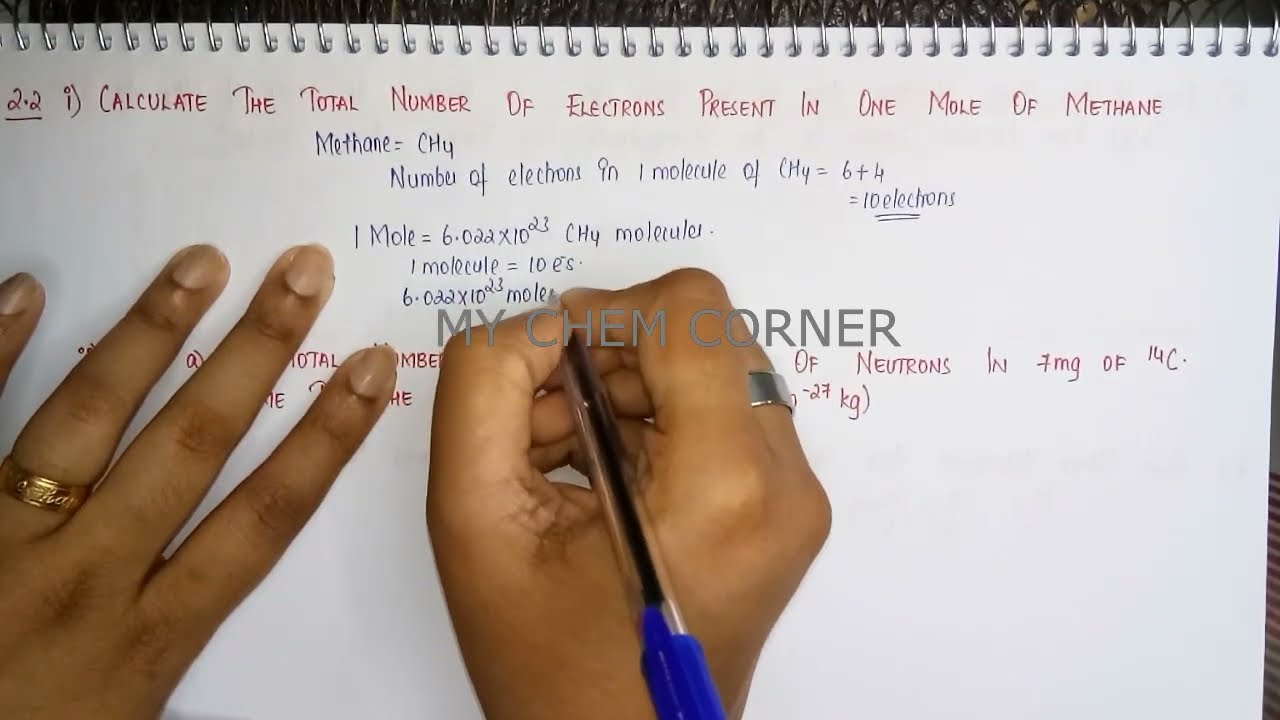 2.2 i) CALCULATE THE TOTAL NUMBER OF ELECTRONS PRESENT IN ONE MOLE OF METHANE
Methane = CH4
Number of electrons in 1 molecule of CH4 = 6+4
= 10 electrons
1 Mole = 6.022×10²³ CH4 molecules.
1 molecule = 10 e⁻s.
6.022×10²³ mole
MY CHEM CORNER
a) OF NEUTRONS IN 7mg OF ¹⁴C.
THE ⁻²⁷ kg)